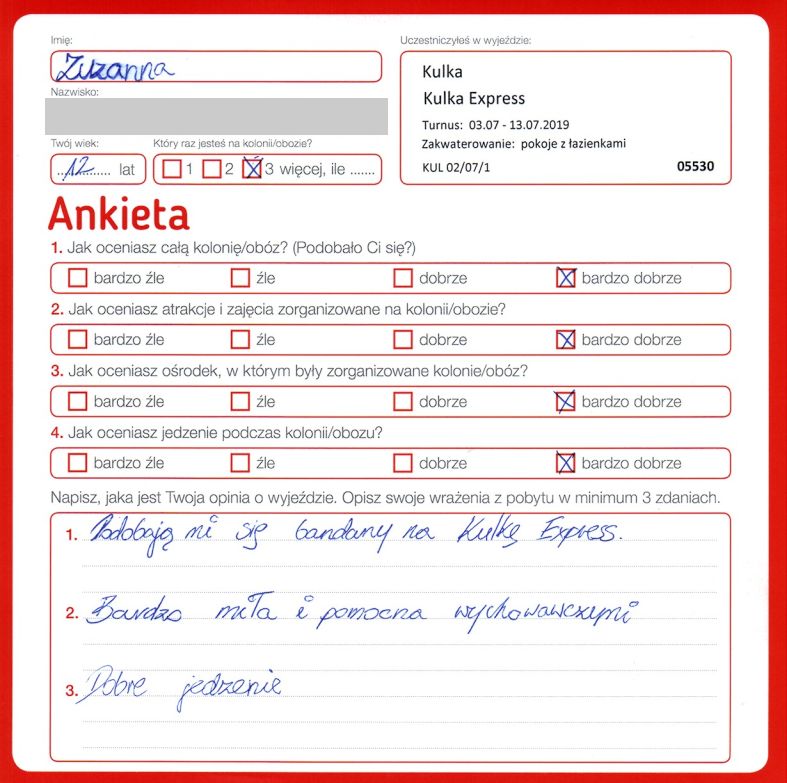 Imię:
Zuzanna
Nazwisko:
Twój wiek:
12 lat
Który raz jesteś na kolonii/obozie?
1 2 3 więcej, ile .......
Uczestniczyłeś w wyjeździe:
Kulka
Kulka Express
Turnus: 03.07 - 13.07.2019
Zakwaterowanie: pokoje z łazienkami
KUL 02/07/1 05530
Ankieta
1. Jak oceniasz całą kolonię/obóz? (Podobało Ci się?)
bardzo źle źle dobrze bardzo dobrze
2. Jak oceniasz atrakcje i zajęcia zorganizowane na kolonii/obozie?
bardzo źle źle dobrze bardzo dobrze
3. Jak oceniasz ośrodek, w którym były zorganizowane kolonie/obóz?
bardzo źle źle dobrze bardzo dobrze
4. Jak oceniasz jedzenie podczas kolonii/obozu?
bardzo źle źle dobrze bardzo dobrze
Napisz, jaka jest Twoja opinia o wyjeździe. Opisz swoje wrażenia z pobytu w minimum 3 zdaniach.
1. Podobają mi się bandany na Kulkę Express.
2. Bardzo miła i pomocna wychowawczymi
3. Dobre jedzenie